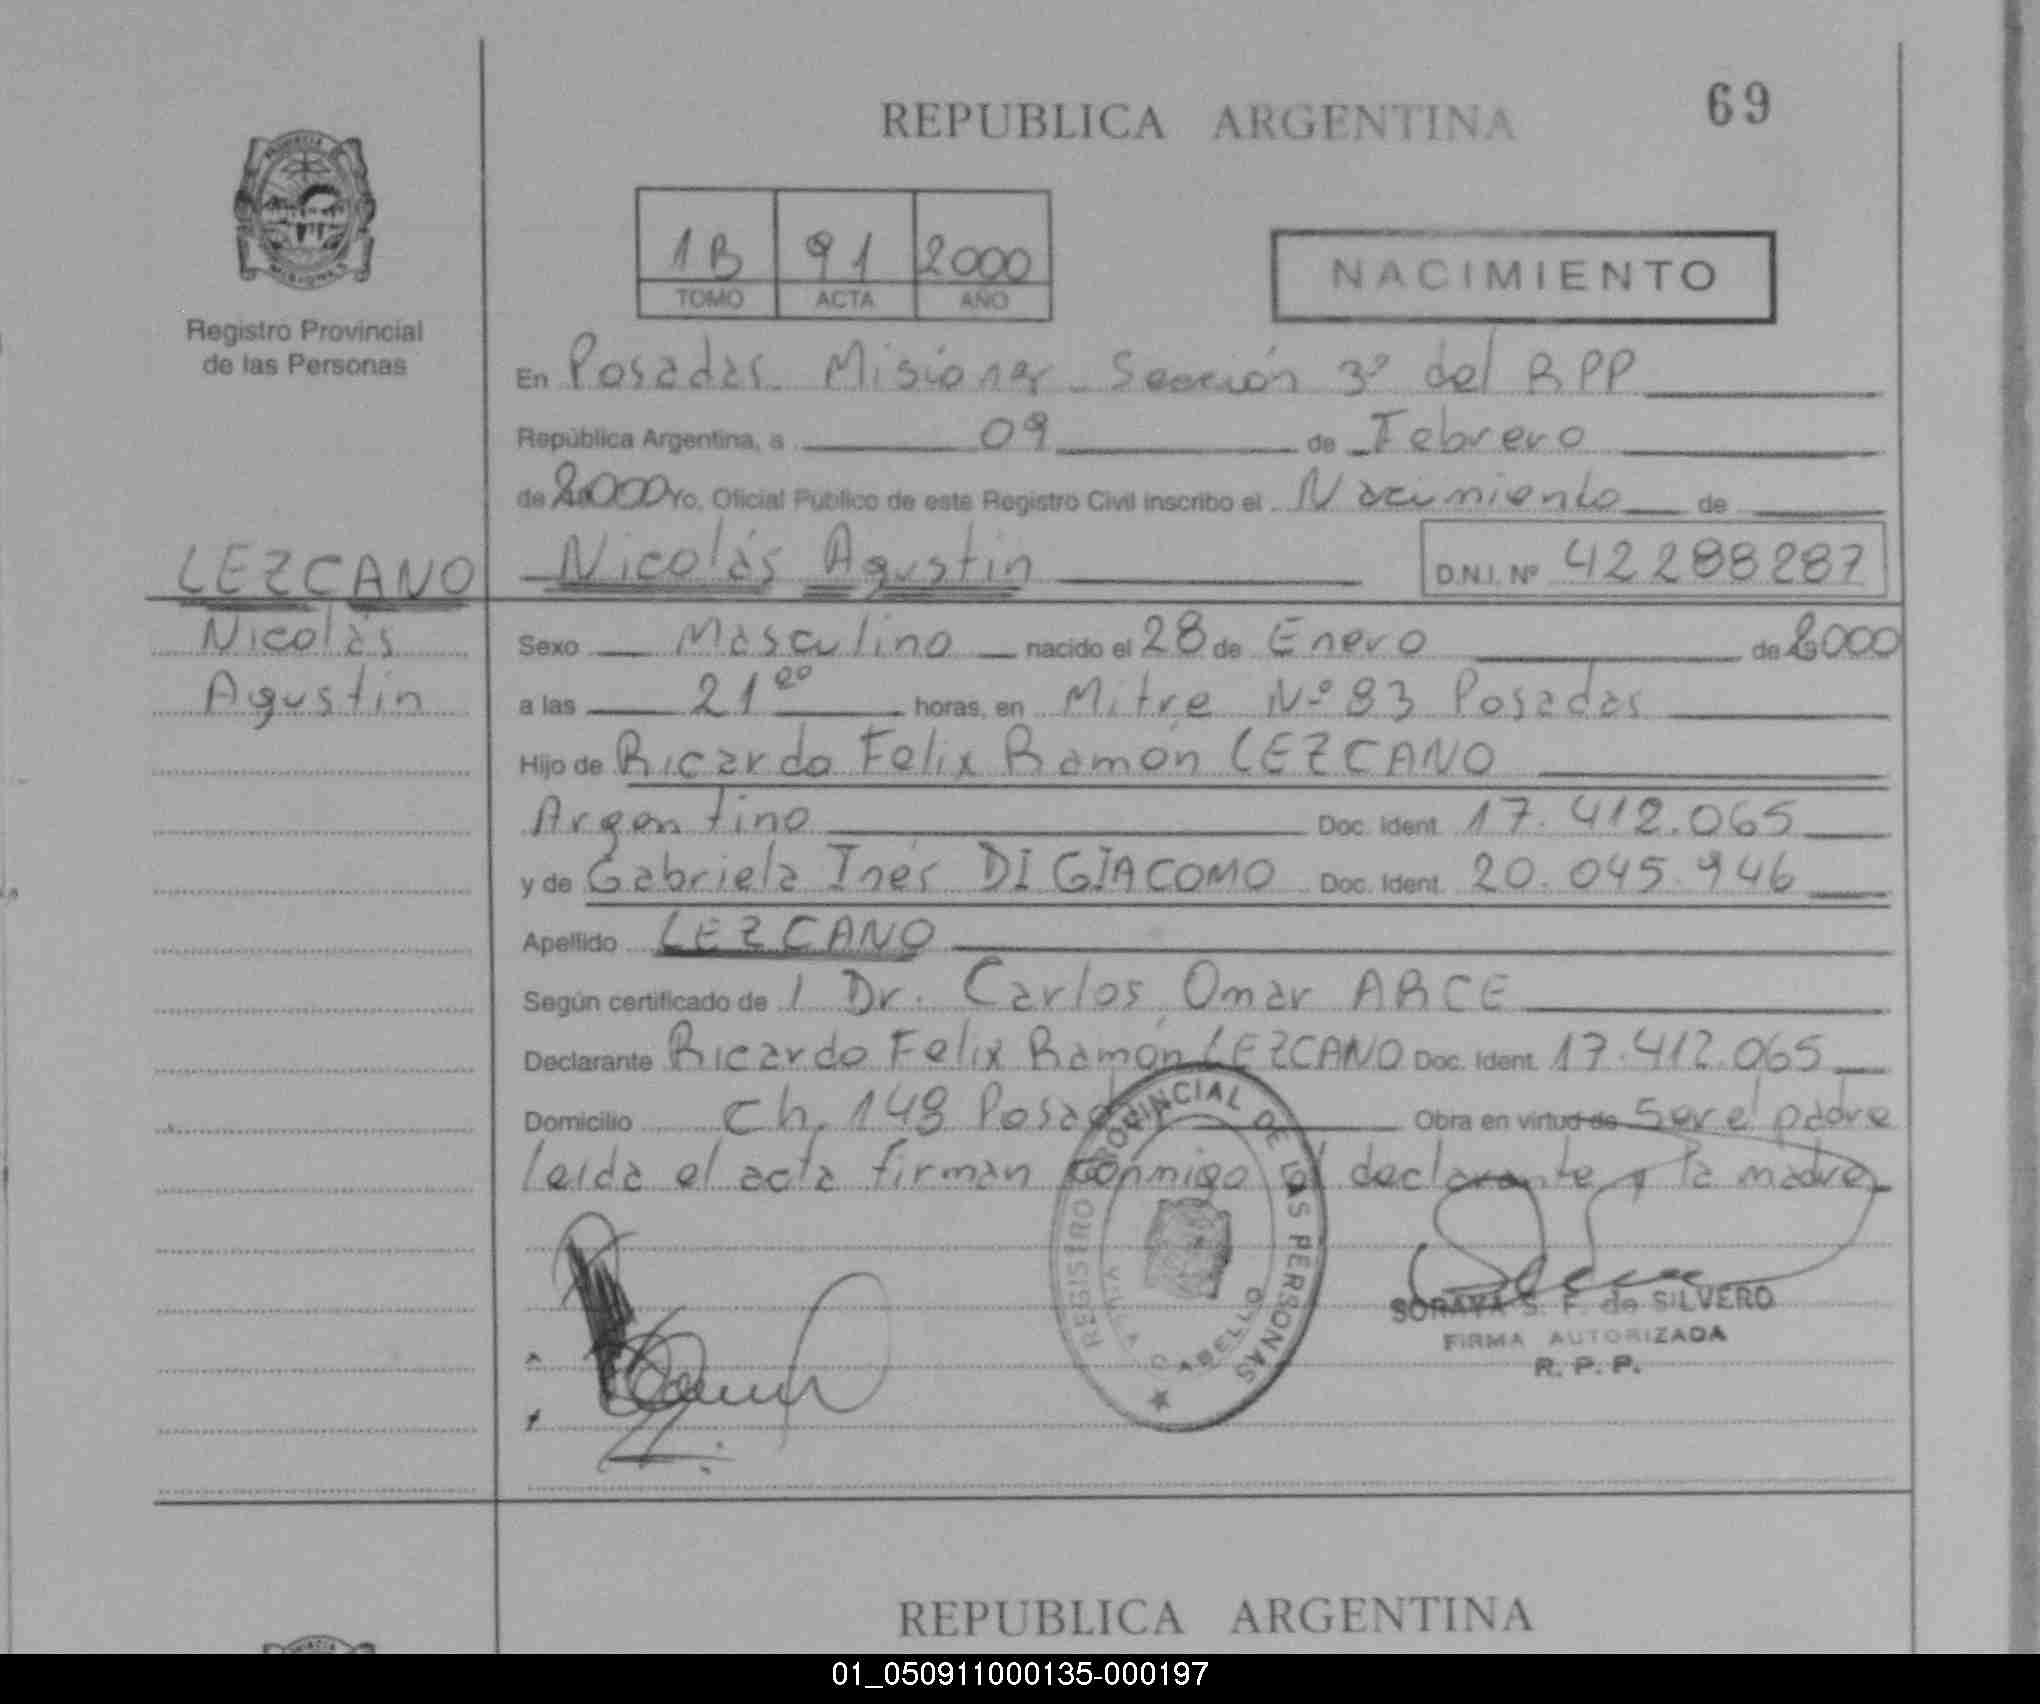 69
REPUBLICA ARGENTINA
1B 91 2000
TOMO ACTA AÑO
NACIMIENTO
PROVINCIA DE
MISIONES
Registro Provincial
de las Personas
En Posadas Misiones Sección 3º del RPP
República Argentina, a 09 de Febrero
de 2000 Yo, Oficial Público de este Registro Civil inscribo el Nacimiento de
LEZCANO Nicolás Agustín D.N.I. Nº 42288287
Nicolás
Agustín
Sexo Masculino nacido el 28 de Enero de 2000
a las 21 horas, en Mitre Nº 83 Posadas
Hijo de Ricardo Felix Ramón LEZCANO
Argentino Doc. Ident. 17.412.065
y de Gabriela Inés DI GIACOMO Doc. Ident. 20.045.946
Apellido LEZCANO
Según certificado de l Dr. Carlos Omar ARCE
Declarante Ricardo Felix Ramón LEZCANO Doc. Ident. 17.412.065
Domicilio Ch. 149 Posadas Obra en virtud de Ser el padre
leida el acta firman conmigo el declarante y la madre
REGISTRO PROVINCIAL DE LAS PERSONAS
SORAYA S. F. de SILVERO
FIRMA AUTORIZADA
R. P. P.
REPUBLICA ARGENTINA
01_050911000135-000197